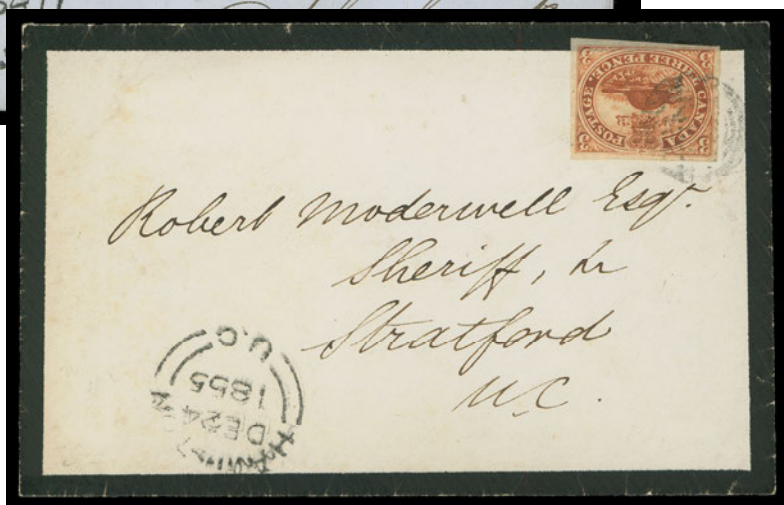 3 CANADA 3
POSTAGE. THREE PENCE.
3 3
Robert Moderwell Esqr.
Sheriff, &c
Stratford
U.C.
HAMILTON
DE 24
1855
U.C